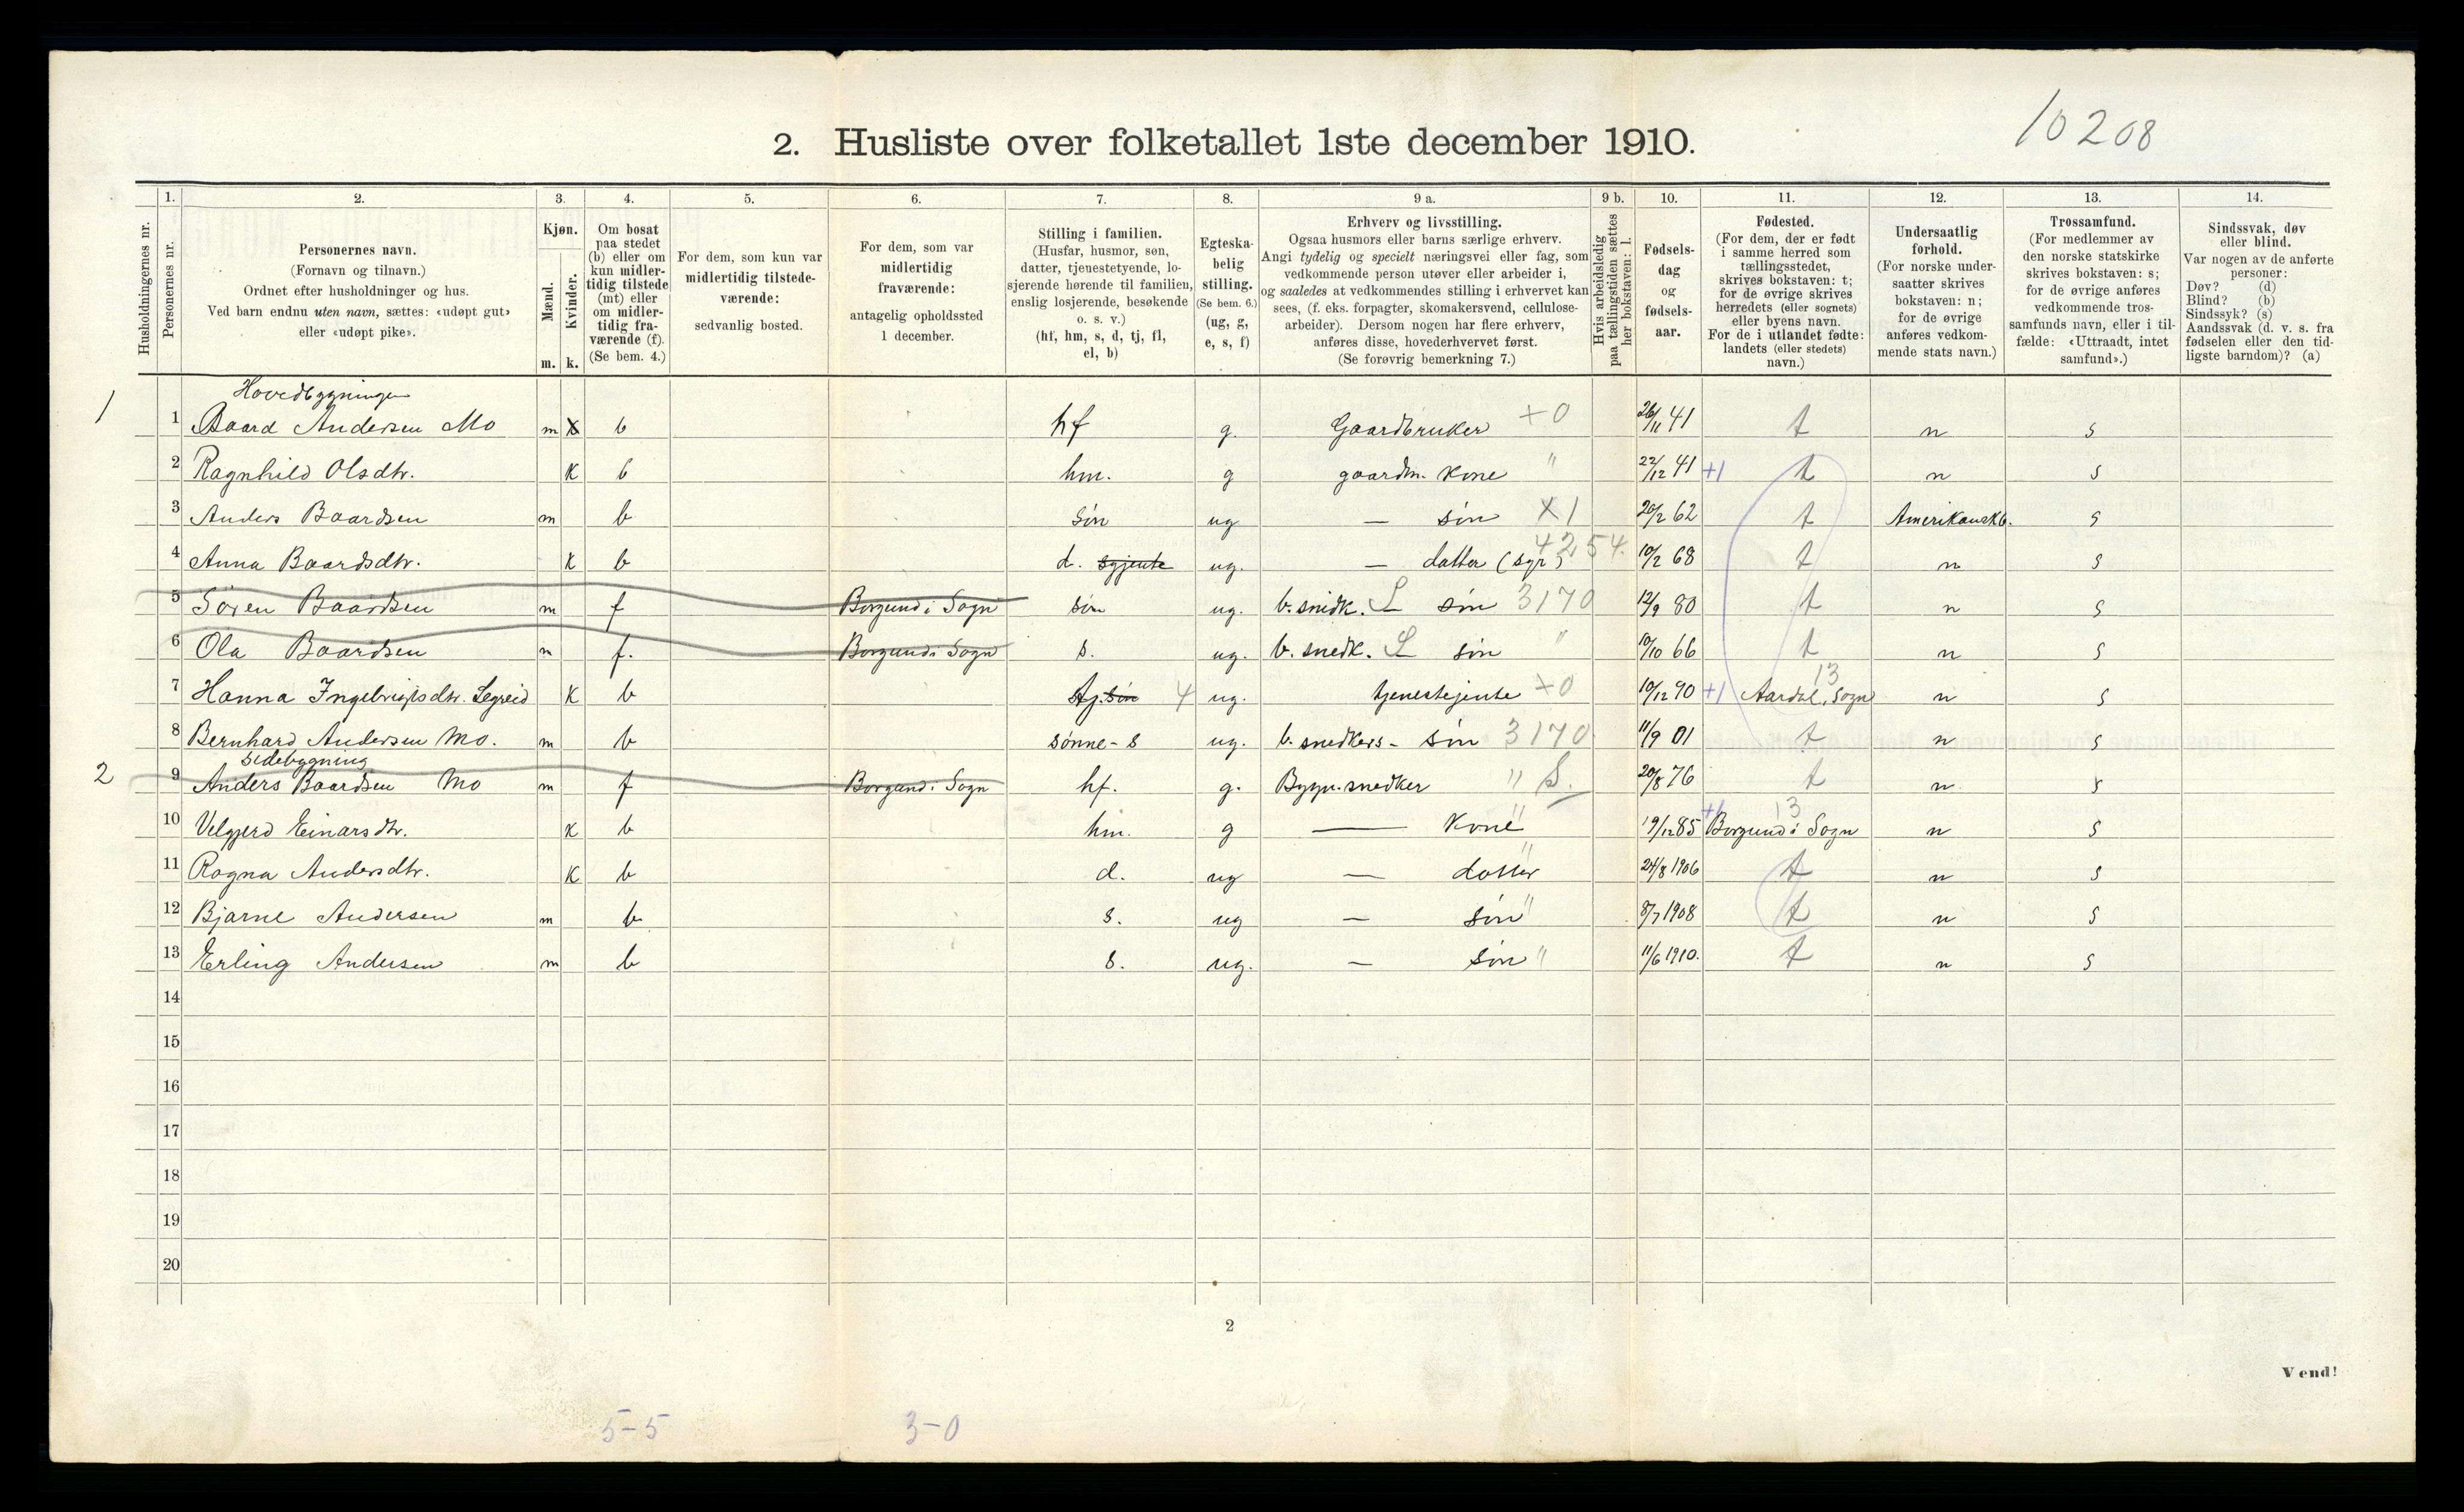 10208
2. Husliste over folketallet 1ste december 1910.
Husholdningernes nr.
1. Personernes nr.
2. Personernes navn.
(Fornavn og tilnavn.)
Ordnet efter husholdninger og hus.
Ved barn endnu uten navn, sættes: «udøpt gut»
eller «udøpt pike».
3. Kjøn.
Mænd. m.
Kvinder. k.
4. Om bosat
paa stedet
(b) eller om
kun midler-
tidig tilstede
(mt) eller
om midler-
tidig fra-
værende (f).
(Se bem. 4.)
5. For dem, som kun var
midlertidig tilstede-
værende:
sedvanlig bosted.
6. For dem, som var
midlertidig
fraværende:
antagelig opholdssted
1 december.
7. Stilling i familien.
(Husfar, husmor, søn,
datter, tjenestetyende, lo-
sjerende hørende til familien,
enslig losjerende, besøkende
o. s. v.)
(hf, hm, s, d, tj, fl,
el, b)
8. Egteska-
belig
stilling.
(Se bem. 6.)
(ug, g,
e, s, f)
9 a. Erhverv og livsstilling.
Ogsaa husmors eller barns særlige erhverv.
Angi tydelig og specielt næringsvei eller fag, som
vedkommende person utøver eller arbeider i,
og saaledes at vedkommendes stilling i erhvervet kan
sees, (f. eks. forpagter, skomakersvend, cellulose-
arbeider). Dersom nogen har flere erhverv,
anføres disse, hovederhvervet først.
(Se forøvrig bemerkning 7.)
9 b. Hvis arbeidsledig
paa tællingstiden sættes
her bokstaven: l.
10. Fødsels-
dag
og
fødsels-
aar.
11. Fødested.
(For dem, der er født
i samme herred som
tællingsstedet,
skrives bokstaven: t;
for de øvrige skrives
herredets (eller sognets)
eller byens navn.
For de i utlandet fødte:
landets (eller stedets)
navn.)
12. Undersaatlig
forhold.
(For norske under-
saatter skrives
bokstaven: n;
for de øvrige
anføres vedkom-
mende stats navn.)
13. Trossamfund.
(For medlemmer av
den norske statskirke
skrives bokstaven: s;
for de øvrige anføres
vedkommende tros-
samfunds navn, eller i til-
fælde: «Uttraadt, intet
samfund».)
14. Sindssvak, døv
eller blind.
Var nogen av de anførte
personer:
Døv? (d)
Blind? (b)
Sindssyk? (s)
Aandssvak (d. v. s. fra
fødselen eller den tid-
ligste barndom)? (a)
Hovedbygningen
1 1 Baard Andersen Mo m b hf g. Gaardbruker +0 26/11 41 t n s
2 Ragnhild Olsdtr. K b hm. g gaardm. Kone " 22/12 41 +1 t n s
3 Anders Baardsen m b søn ug — søn X1 20/2 62 t Amerikansk b. s
4 Anna Baardsdtr. K b d. syjente ug. — datter (syr) 4254. 10/2 68 t n s
5 Søren Baardsen m f Borgund i Sogn søn ug. b. snidk. S søn 3170 12/9 80 t n s
6 Ola Baardsen m f. Borgund i Sogn s. ug. b. snedk. S søn " 10/10 66 t n s
7 Hanna Ingebrigtsdtr. Legreid K b tj. søn 4 ug. tjenestejente +0 10/12 90 +1 13 Aardal, Sogn n s
8 Bernhard Andersen Mo. m b sønne-s ug. b. snedkers- søn 3170 11/9 01 t n s
Sidebygning
2 9 Anders Baardsen Mo m f Borgund i Sogn hf. g. Bygn. snedker " S. 20/8 76 t n. s
10 Velgjerd Einarsdtr. K b hm. g — Kone " 19/12 85 +1 13 Borgund i Sogn n s
11 Ragna Andersdtr. K b d. ug — datter " 24/8 1906 t n s
12 Bjarne Andersen m b s. ug — søn " 8/7 1908 t n s
13 Erling Andersen m b s. ug. — søn " 11/6 1910. t n s
14
15
16
17
18
19
20
2
Vend!
5-5 3-0